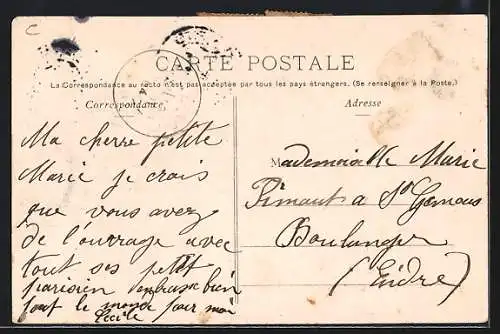 C
CARTE POSTALE
La Correspondance au recto n'est pas acceptée par tous les pays étrangers. (Se renseigner à la Poste.)
Correspondance
Ma cherre petite
Marie je crois
que vous avez
de l'ouvrage avec
tout ses petit
parisien embrasse bien
tout le monde pour moi
Cecile
Adresse
Mademoiselle Marie
a St
Boulanger
(Indre)